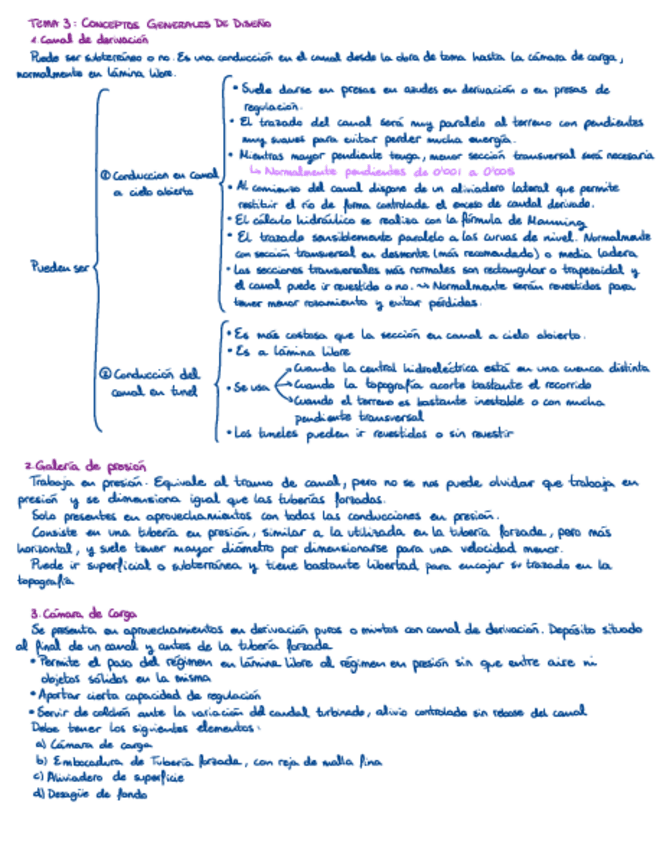 TEMA 3: CONCEPTOS GENERALES DE DISEÑO
1. Canal de derivación
Puede ser subterráneo o no. Es una conducción en el canal desde la obra de toma hasta la cámara de carga,
normalmente en lámina libre.
Pueden ser
① Conduccion en canal
a cielo abierto
• Suele darse en presas en azudes en derivación o en presas de
regulación.
• El trazado del canal será muy paralelo al terreno con pendientes
muy suaves para evitar perder mucha energía.
• Mientras mayor pendiente tenga, menor sección transversal será necesaria
↳ Normalmente pendientes de 0'001 a 0'005
• Al comienzo del canal dispone de un aliviadero lateral que permite
restituir el río de forma controlada el exceso de caudal derivado.
• El cálculo hidráulico se realiza con la fórmula de Manning
• El trazado sensiblemente paralelo a las curvas de nivel. Normalmente
con sección transversal en desmonte (más recomendado) o media ladera
• Las secciones transversales más normales son rectangular o trapezoidal y
el canal puede ir revestido o no. ⇝ Normalmente serán revestidos para
tener menor rozamiento y evitar pérdidas.
② Conducción del
canal en tunel
• Es más costosa que la sección en canal a cielo abierto.
• Es a lámina libre
• Se usa
Cuando la central hidroeléctrica está en una cuenca distinta
Cuando la topografía acorta bastante el recorrido
Cuando el terreno es bastante inestable o con mucha
pendiente transversal
• Los tuneles pueden ir revestidos o sin revestir
2. Galería de presión
Trabaja en presión. Equivale al tramo de canal, pero no se nos puede olvidar que trabaja en
presión y se dimensiona igual que las tuberías forzadas.
Solo presentes en aprovechamientos con todas las conducciones en presión.
Consiste en una tubería en presión, similar a la utilizada en la tubería forzada, pero más
horizontal, y suele tener mayor diámetro por dimensionarse para una velocidad menor.
Puede ir superficial o subterránea y tiene bastante libertad para encajar su trazado en la
topografía.
3. Cámara de Carga
Se presenta en aprovechamientos en derivación puros o mixtos con canal de derivación. Depósito situado
al final de un canal y antes de la tubería forzada
• Permite el paso del régimen en lámina libre al régimen en presión sin que entre aire ni
objetos sólidos en la misma
• Aportar cierta capacidad de regulación
• Servir de colchón ante la variación del caudal turbinado, alivio controlado sin rebose del canal
Debe tener los siguientes elementos:
a) Cámara de carga
b) Embocadura de Tubería forzada, con reja de malla fina
c) Aliviadero de superficie
d) Desagüe de fondo